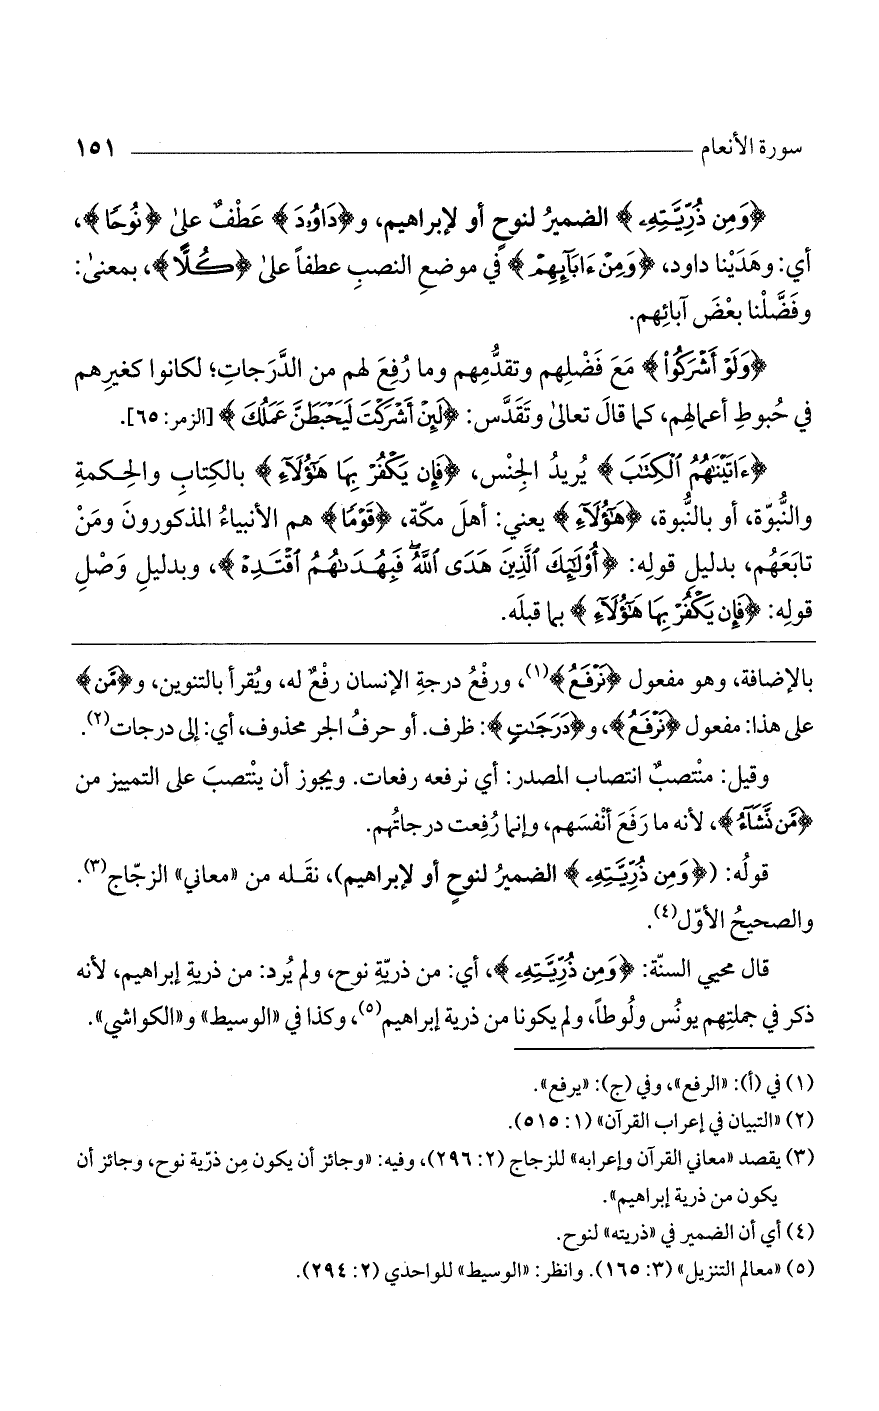 سورة الأنعام ١٥١
﴿وَمِن ذُرِّيَّتِهِۦ﴾ الضميرُ لنوحٍ أو لإبراهيم، و﴿دَاوُۥدَ﴾ عَطْفٌ علىٰ ﴿نُوحًا﴾،
أي: وهَدَيْنا داود، ﴿وَمِنْ ءَابَآئِهِمْ﴾ في موضعِ النصبِ عطفاً علىٰ ﴿كُلًّا﴾، بمعنىٰ:
وفَضَّلْنا بعْضَ آبائِهم.
﴿وَلَوْ أَشْرَكُوا۟﴾ مَعَ فَضْلِهم وتقدُّمِهم وما رُفِعَ لهم من الدَّرَجاتِ؛ لكانوا كغيرِهم
في حُبوطِ أعمالِهم، كما قالَ تعالىٰ وتَقَدَّس: ﴿لَئِنْ أَشْرَكْتَ لَيَحْبَطَنَّ عَمَلُكَ﴾ [الزمر: ٦٥].
﴿ءَاتَيْنَٰهُمُ ٱلْكِتَٰبَ﴾ يُريدُ الجِنْس، ﴿فَإِن يَكْفُرْ بِهَا هَٰٓؤُلَآءِ﴾ بالكِتابِ والحِكمةِ
والنُّبوّة، أو بالنُّبوة، ﴿هَٰٓؤُلَآءِ﴾ يعني: أهلَ مكّة، ﴿قَوْمًا﴾ هم الأنبياءُ المذكورونَ ومَنْ
تابَعَهُم، بدليلِ قولِه: ﴿أُو۟لَٰٓئِكَ ٱلَّذِينَ هَدَى ٱللَّهُ ۖ فَبِهُدَىٰهُمُ ٱقْتَدِهْ﴾، وبدليلِ وَصْلِ
قولِه: ﴿فَإِن يَكْفُرْ بِهَا هَٰٓؤُلَآءِ﴾ بما قبلَه.
بالإضافة، وهو مفعول ﴿نَرْفَعُ﴾(١)، ورفْعُ درجةِ الإنسان رفْعٌ له، ويُقرأ بالتنوين، و﴿مَّن﴾
على هذا: مفعول ﴿نَرْفَعُ﴾، و﴿دَرَجَٰتٍ﴾: ظرف. أو حرفُ الجر محذوف، أي: إلى درجات(٢).
وقيل: منْتصبٌ انتصاب المصدر: أي نرفعه رفعات. ويجوز أن ينْتصبَ على التمييز من
﴿مَّن نَّشَآءُ﴾، لأنه ما رَفَعَ أنْفسَهم، وإنما رُفِعت درجاتُهم.
قولُه: (﴿وَمِن ذُرِّيَّتِهِۦ﴾ الضميرُ لنوحٍ أو لإبراهيم)، نقَله من «معاني» الزجّاج(٣).
والصحيحُ الأوّل(٤).
قال محيي السنّة: ﴿وَمِن ذُرِّيَّتِهِۦ﴾، أي: من ذريّةِ نوح، ولم يُرد: من ذريةِ إبراهيم، لأنه
ذكر في جملتِهم يونُس ولُوطاً، ولم يكونا من ذرية إبراهيم(٥)، وكذا في «الوسيط» و«الكواشي».
(١) في (أ): «الرفع»، وفي (ج): «يرفع».
(٢) «التبيان في إعراب القرآن» (١: ٥١٥).
(٣) يقصد «معاني القرآن وإعرابه» للزجاج (٢: ٢٩٦)، وفيه: «وجائز أن يكون مِن ذرّية نوح، وجائز أن
يكون من ذرية إبراهيم».
(٤) أي أن الضمير في «ذريته» لنوح.
(٥) «معالم التنزيل» (٣: ١٦٥). وانظر: «الوسيط» للواحدي (٢: ٢٩٤).